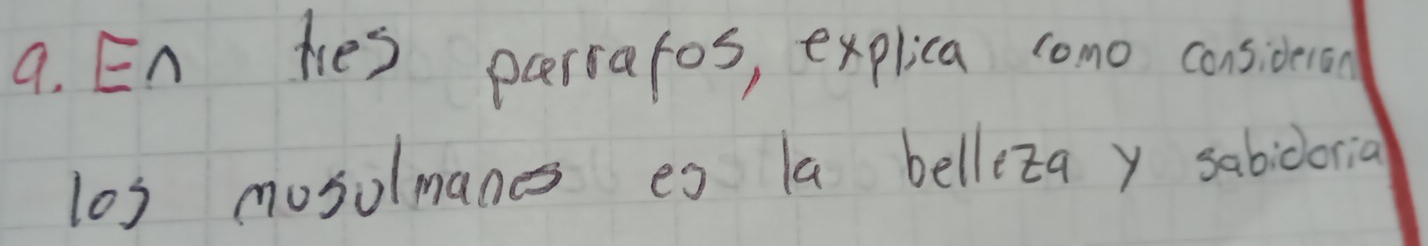 9. En tres parrafos, explica como consideran
los musulmanes es la belleza y sabidoria